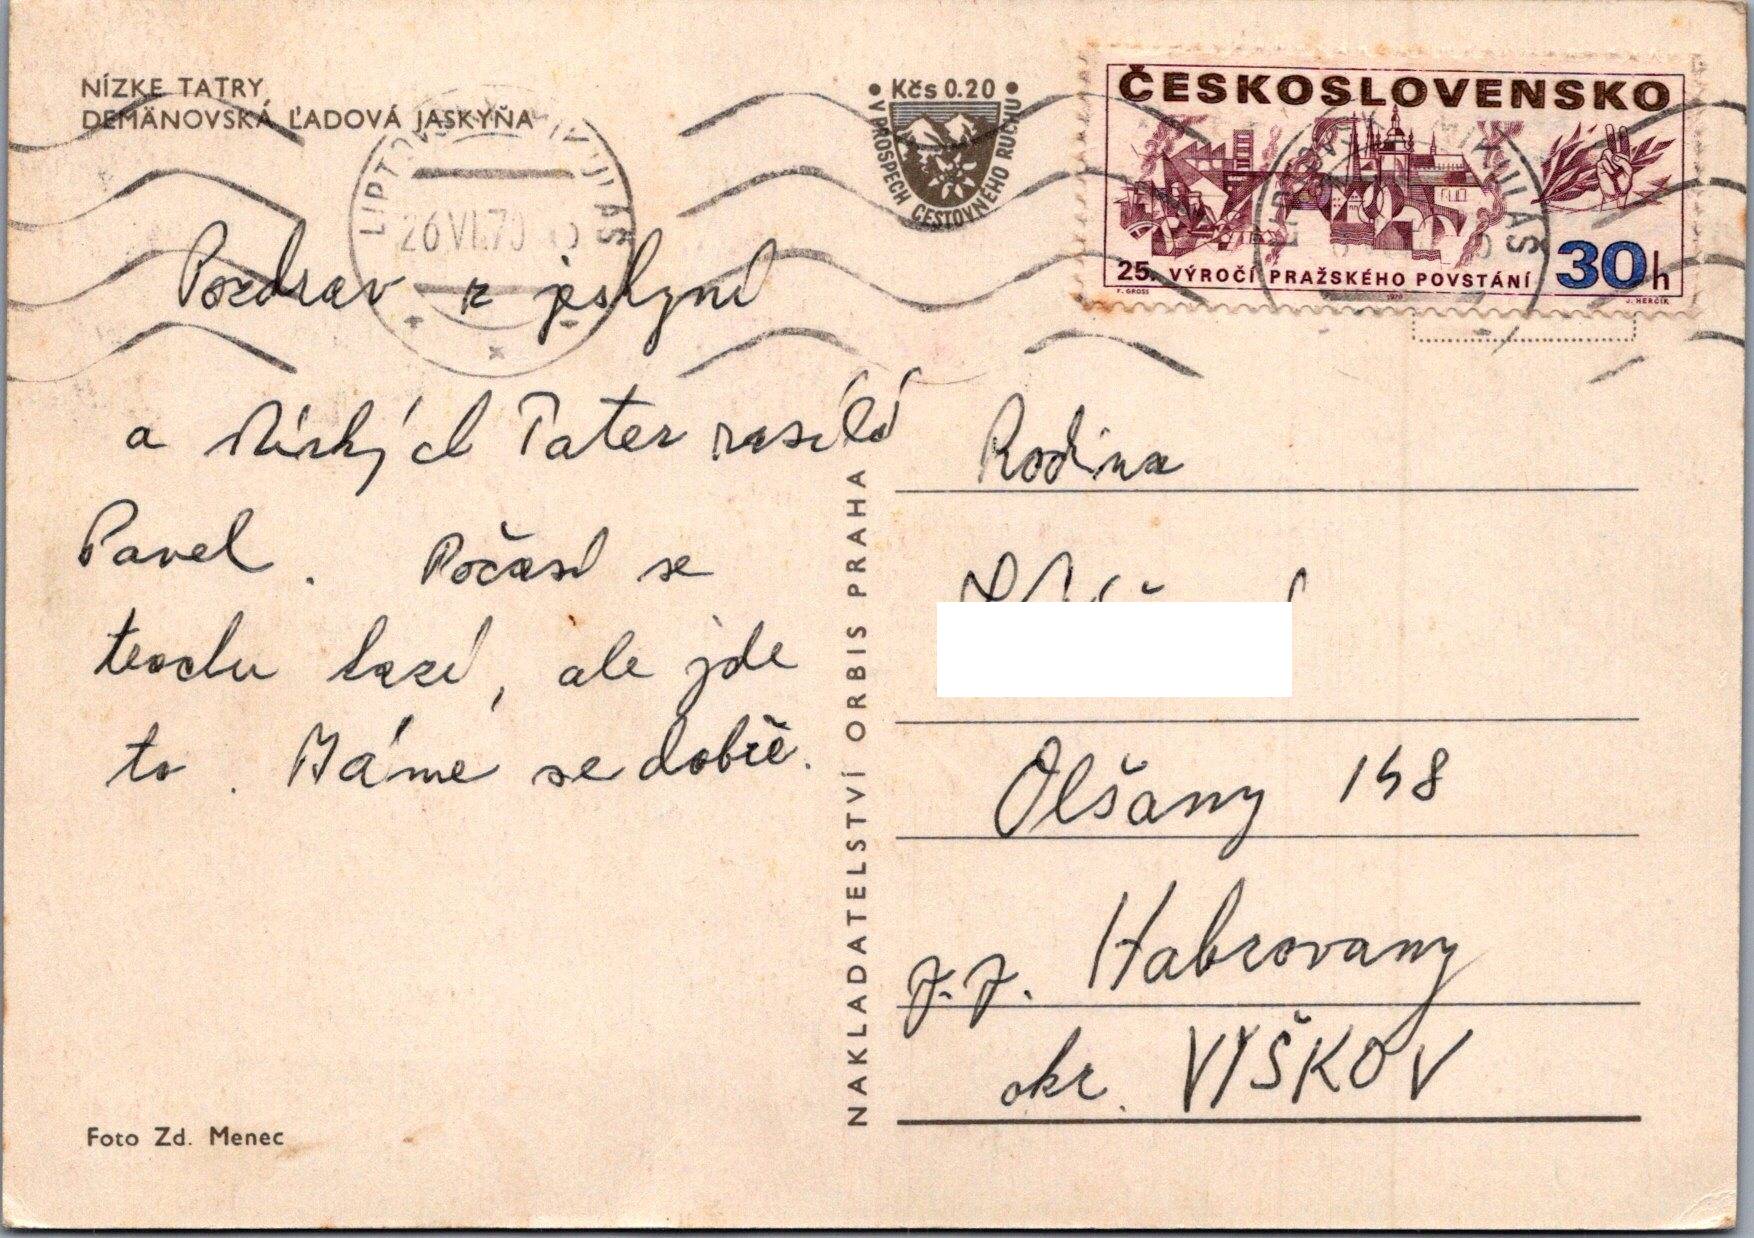 NÍZKE TATRY
DEMÄNOVSKÁ ĽADOVÁ JASKYŇA
• Kčs 0.20 •
V PROSPECH CESTOVNÉHO RUCHU
ČESKOSLOVENSKO
25. VÝROČÍ PRAŽSKÉHO POVSTÁNÍ
30h
F. GROSS
1970
J. HERČÍK
26.VI.70
Pozdrav z jeskyní
a Nízkých Tater zasílá
Pavel. Počasí se
trochu kazí, ale jde
to. Máme se dobře.
NAKLADATELSTVÍ ORBIS PRAHA
Rodina
Olšany 148
p.p. Habrovany
okr. VYŠKOV
Foto Zd. Menec